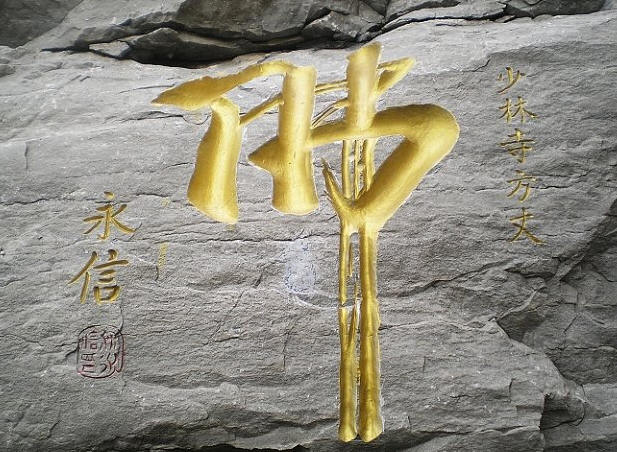 少林寺方丈
佛
永信